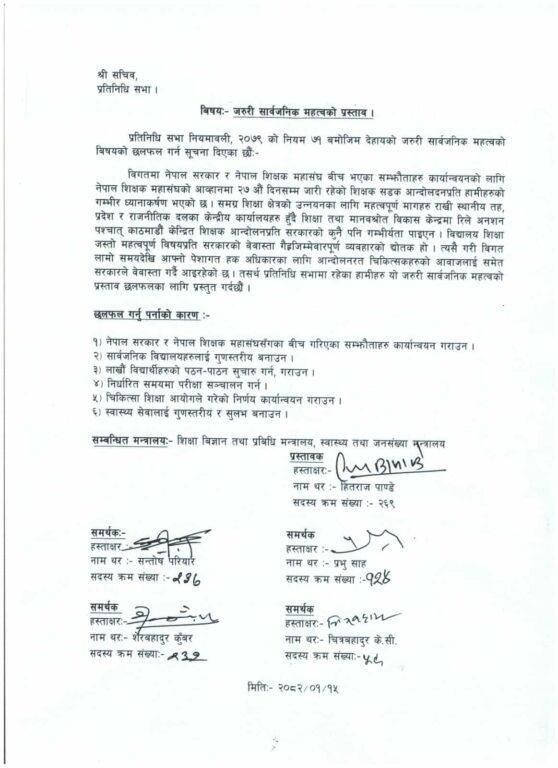 श्री सचिव,
प्रतिनिधि सभा ।
विषय:- जरुरी सार्वजनिक महत्वको प्रस्ताव ।
प्रतिनिधि सभा नियमावली, २०७९ को नियम ७१ बमोजिम देहायको जरुरी सार्वजनिक महत्वको
विषयको छलफल गर्न सूचना दिएका छौं:-
विगतमा नेपाल सरकार र नेपाल शिक्षक महासंघ बीच भएका सम्झौताहरु कार्यान्वयनको लागि
नेपाल शिक्षक महासंघको आव्हानमा २७ औं दिनसम्म जारी रहेको शिक्षक सडक आन्दोलनप्रति हामीहरुको
गम्भीर ध्यानाकर्षण भएको छ । समग्र शिक्षा क्षेत्रको उन्नयनका लागि महत्वपूर्ण मागहरु राखी स्थानीय तह,
प्रदेश र राजनीतिक दलका केन्द्रीय कार्यालयहरु हुँदै शिक्षा तथा मानवश्रोत विकास केन्द्रमा रिले अनशन
पश्चात् काठमाडौं केन्द्रित शिक्षक आन्दोलनप्रति सरकारको कुनै पनि गम्भीर्यता पाइएन । विद्यालय शिक्षा
जस्तो महत्वपूर्ण विषयप्रति सरकारको वेवास्ता गैह्रजिम्मेवारपूर्ण व्यवहारको द्योतक हो । त्यसै गरी विगत
लामो समयदेखि आफ्नो पेशागत हक अधिकारका लागि आन्दोलनरत चिकित्सकहरुको आवाजलाई समेत
सरकारले वेवास्ता गर्दै आइरहेको छ । तसर्थ प्रतिनिधि सभामा रहेका हामीहरु यो जरुरी सार्वजनिक महत्वको
प्रस्ताव छलफलका लागि प्रस्तुत गर्दछौं ।
छलफल गर्नु पर्नाको कारण :-
१) नेपाल सरकार र नेपाल शिक्षक महासंघसँगका बीच गरिएका सम्झौताहरु कार्यान्वयन गराउन ।
२) सार्वजनिक विद्यालयहरुलाई गुणस्तरीय बनाउन ।
३) लाखौं विद्यार्थीहरुको पठन-पाठन सुचारु गर्न, गराउन ।
४) निर्धारित समयमा परीक्षा सञ्चालन गर्न ।
५) चिकित्सा शिक्षा आयोगले गरेको निर्णय कार्यान्वयन गराउन ।
६) स्वास्थ्य सेवालाई गुणस्तरीय र सुलभ बनाउन ।
सम्बन्धित मन्त्रालय:- शिक्षा विज्ञान तथा प्रविधि मन्त्रालय, स्वास्थ्य तथा जनसंख्या मन्त्रालय
प्रस्तावक
हस्ताक्षर:-
नाम थर :- हितराज पाण्डे
सदस्य क्रम संख्या :- २६९
समर्थक:-
हस्ताक्षर
नाम थर :- सन्तोष परियार
सदस्य क्रम संख्या :-
समर्थक
हस्ताक्षर :-
नाम थर :- प्रभु साह
सदस्य क्रम संख्या :-
समर्थक
हस्ताक्षर:-
नाम थर:- शेरबहादुर कुँवर
सदस्य क्रम संख्या:- २३२
समर्थक
हस्ताक्षर:-
नाम थर:- चित्रबहादुर के.सी.
सदस्य क्रम संख्या:-
मिति:- २०८२/०१/१५